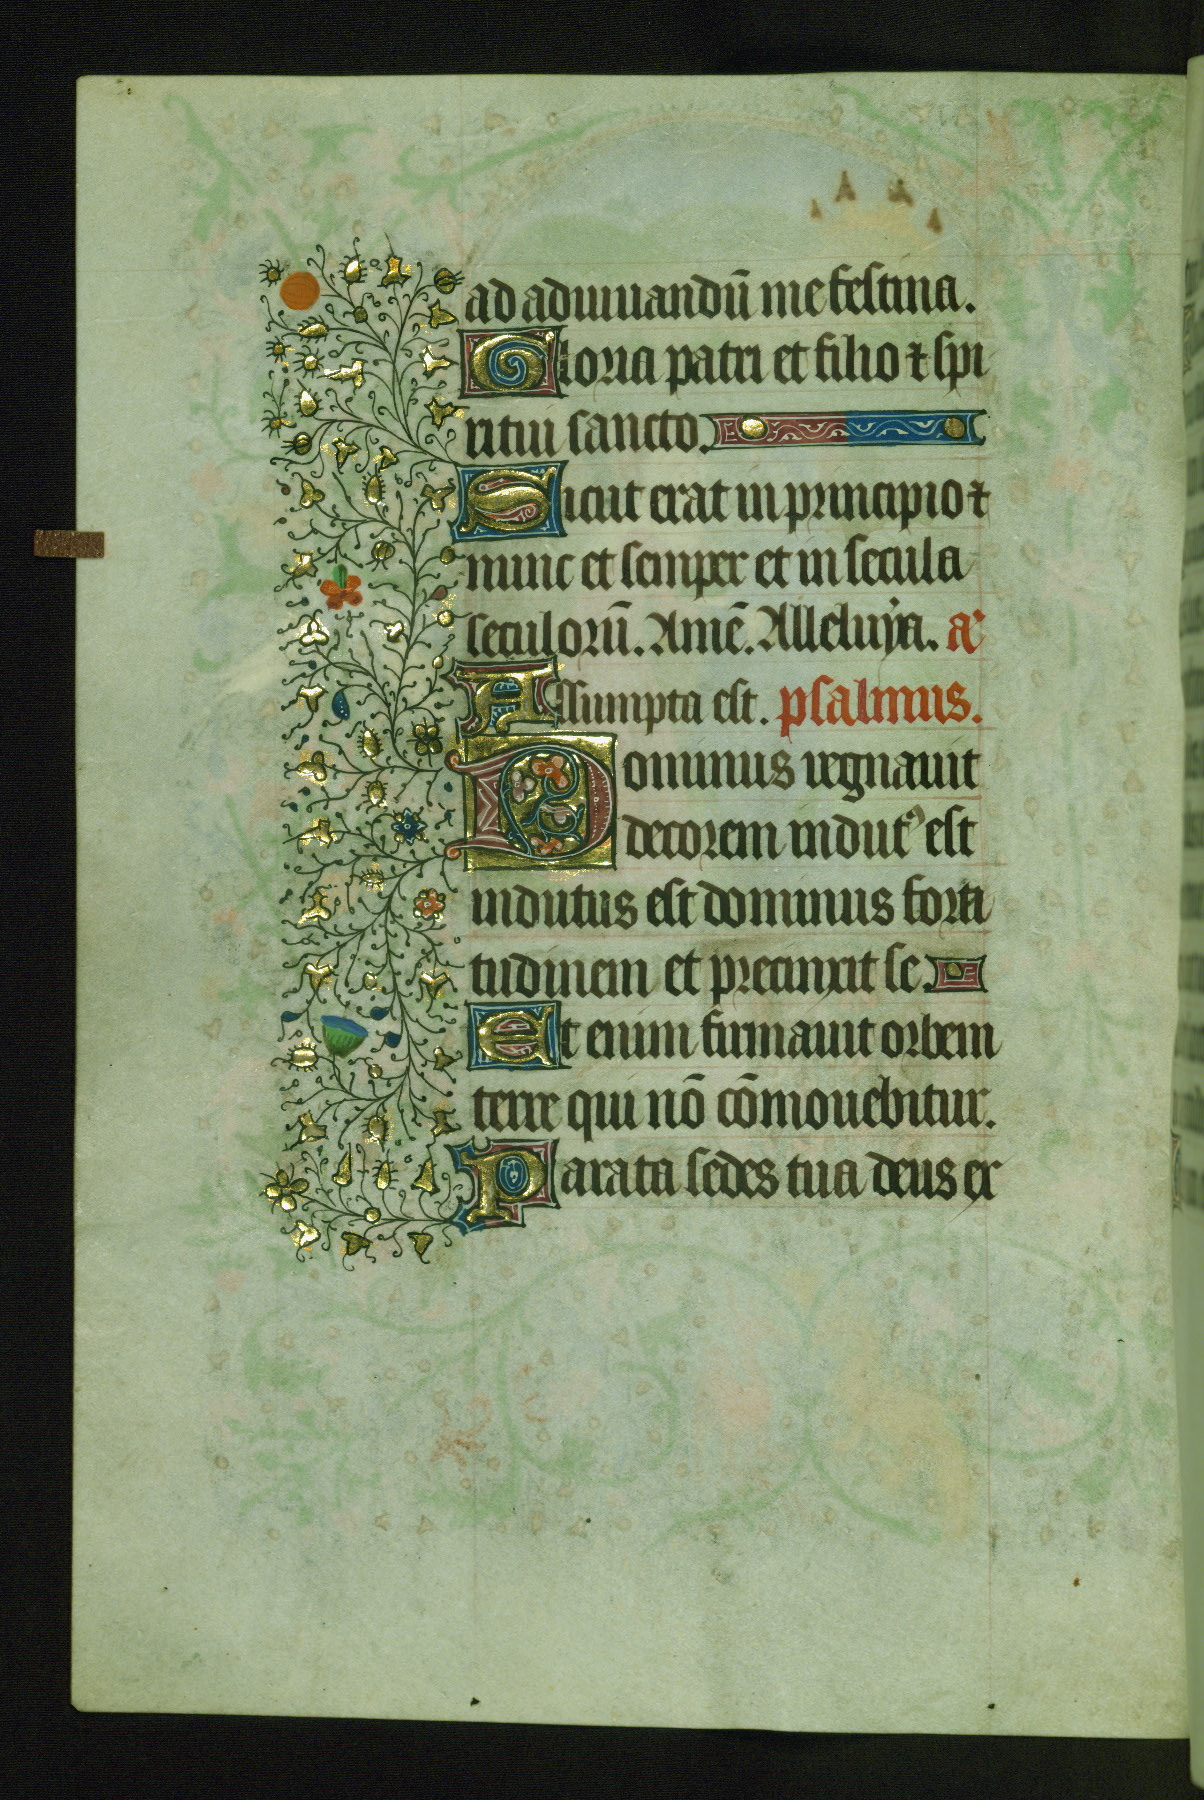 ad adiuuandū me festina.
Gloria patri et filio ⁊ spi
ritui sancto.
Sicut erat in principio ⁊
nunc et semper et in secula
seculorū. Amē. Alleluya. aꝰ
Assumpta est. psalmus.
Dominus regnauit
decorem indutꝰ est
indutus est dominus forti
tudinem et precinxit se.
Et enim firmauit orbem
terre qui nō cōmouebitur.
Parata sedes tua deus ex